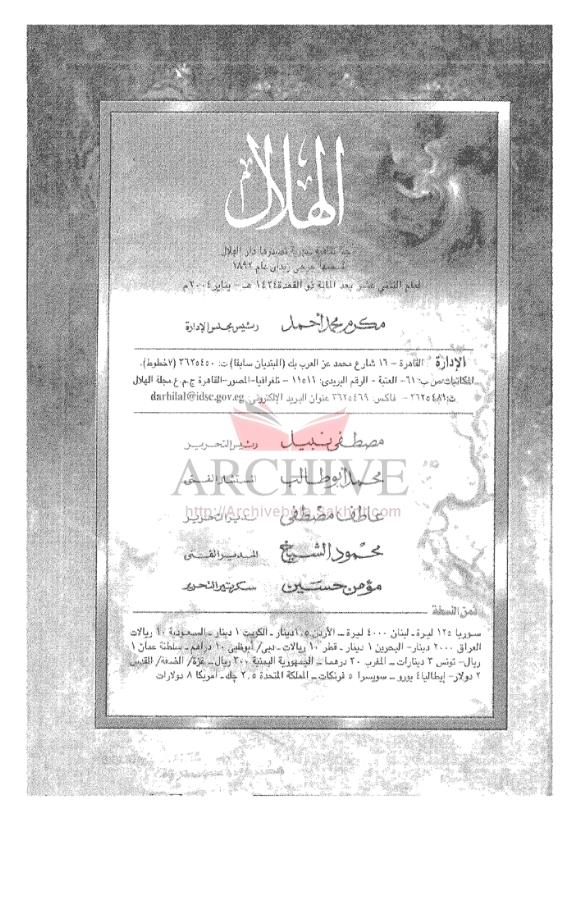 الهلال
مجلة ثقافية شهرية تصدرها دار الهلال
أسسها جرجى زيدان عام ١٨٩٢
العام الثانى عشر بعد المائة ذو القعدة ١٤٢٤ هـ - يناير ٢٠٠٤ م
مكرم محمد أحمد رئيس مجلس الإدارة
الإدارة القاهرة - ١٦ شارع محمد عز العرب بك (المبتديان سابقا) ت: ٣٦٢٥٤٥٠ (٧ خطوط).
المكاتبات: ص.ب: ٦١- العتبة - الرقم البريدى: ١١٥١١ - تلغرافيا- المصور- القاهرة ج.م.ع مجلة الهلال
ت: ٣٦٢٥٤٨١ - فاكس: ٣٦٢٥٤٦٩ عنوان البريد الإلكترونى: darhilal@idsc.gov.eg
مصطفى نبيل رئيس التحرير
محمد أبو طالب المستشار الفنى
ARCHIVE
عاطف مصطفى مدير التحرير
http://Archivebeta.Sakhrit.com
محمود الشيخ المدير الفنى
مؤمن حسين سكرتير التحرير
ثمن النسخة
سوريا ١٢٥ ليرة - لبنان ٤٠٠٠ ليرة - الأردن ١,٥ دينار - الكويت ١ دينار - السعودية ١٠ ريالات
العراق ٢٠٠٠ دينار - البحرين ١ دينار - قطر ١٠ ريالات - دبى/ أبوظبى ١٠ دراهم - سلطنة عمان ١
ريال - تونس ٣ دينارات - المغرب ٢٠ درهما - الجمهورية اليمنية ٢٠٠ ريال - غزة/ الضفة/ القدس
٢ دولار - إيطاليا ٤ يورو - سويسرا ٥ فرنكات - المملكة المتحدة ٢,٥ جك - أمريكا ٨ دولارات